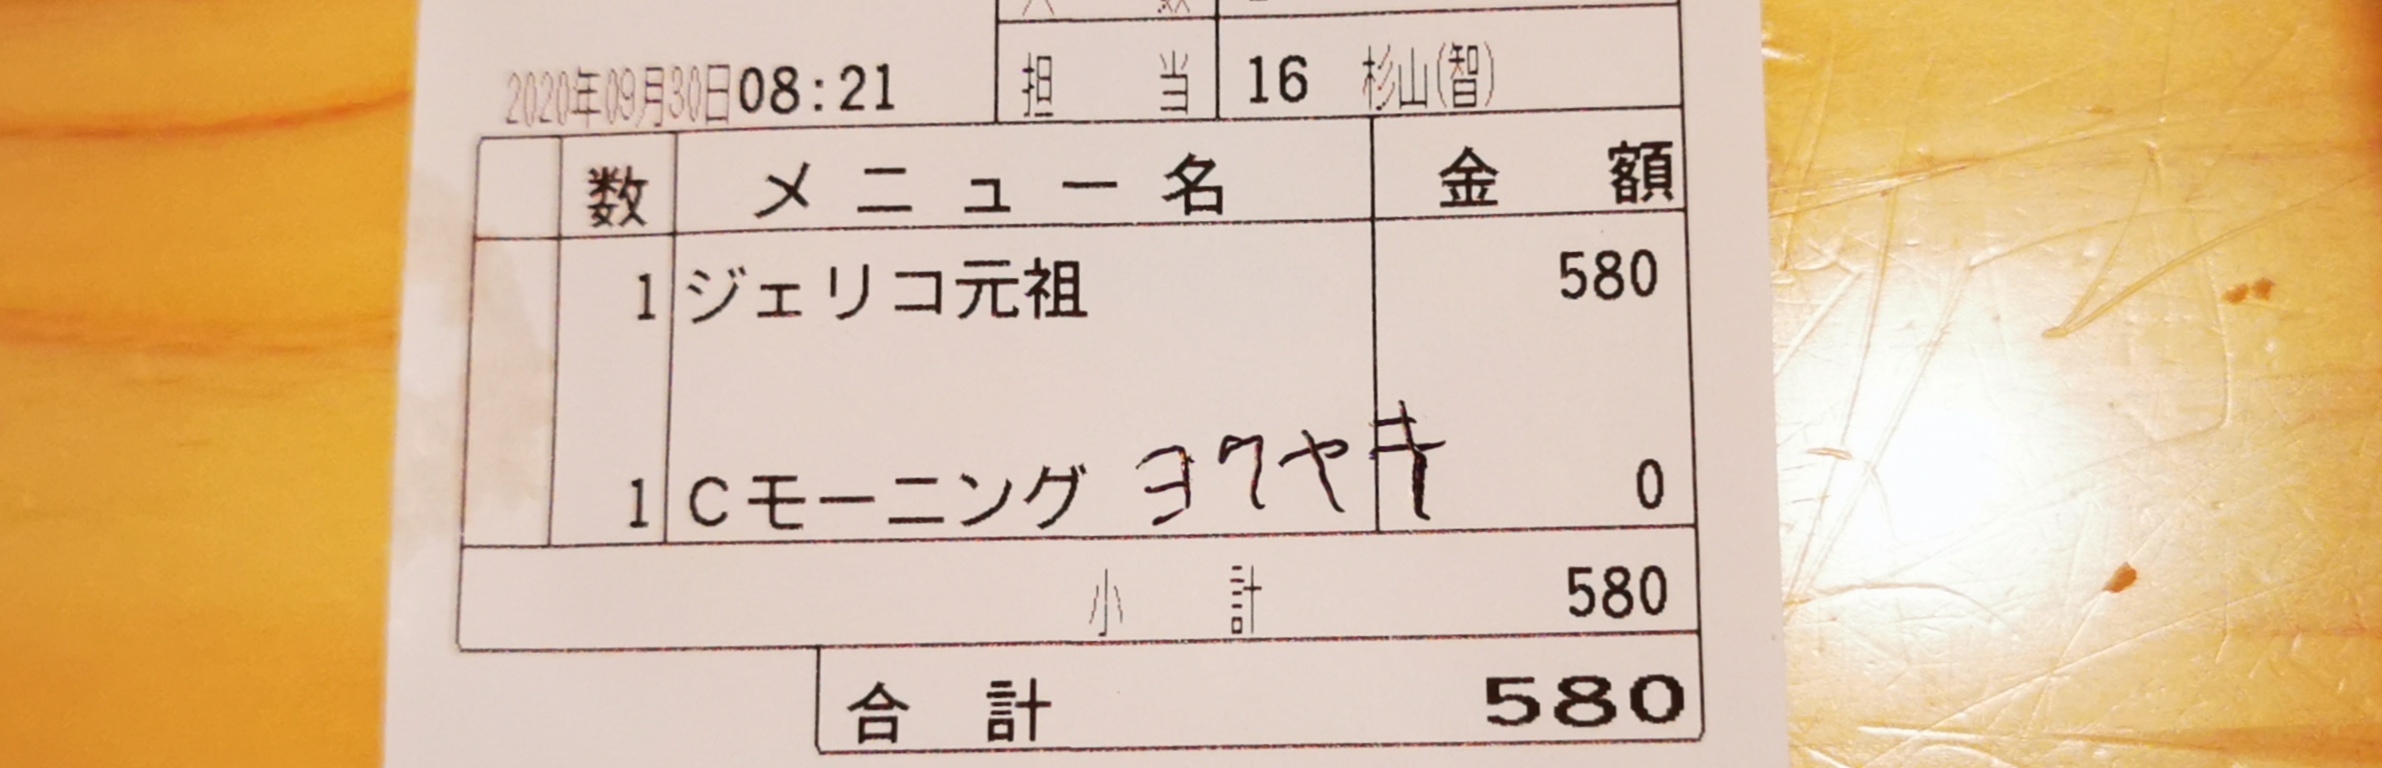 2020年09月30日08:21
担当 16 杉山(智)
数 メニュー名 金額
1 ジェリコ元祖 580
1 Cモーニング ヨクヤキ 0
小計 580
合計 580